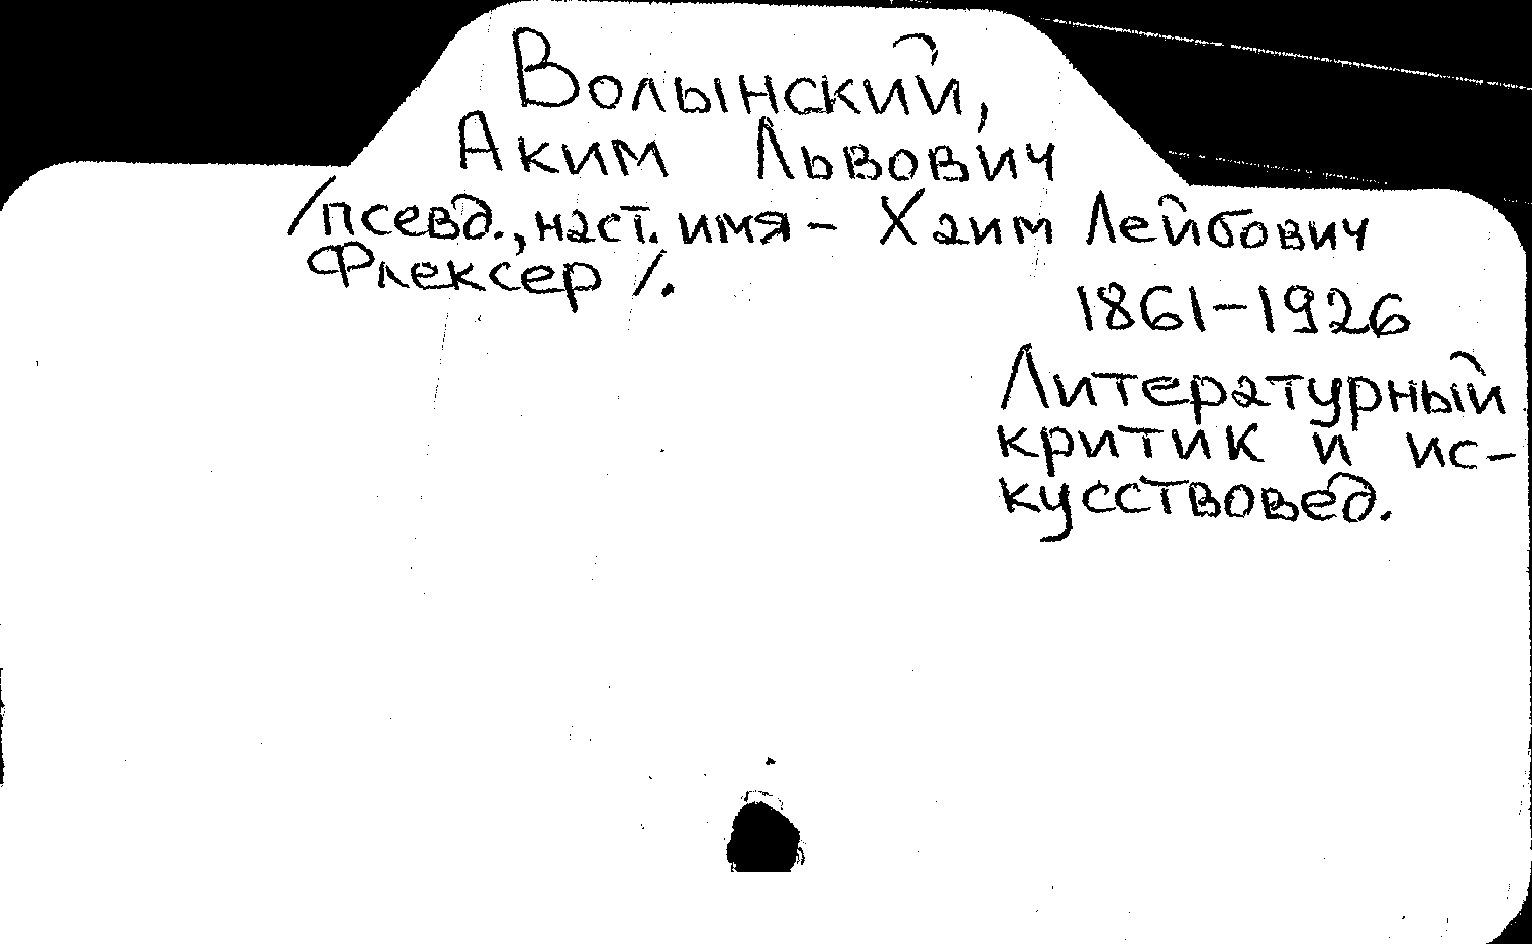 Волынский,
Аким Львович
/псевд., наст. имя – Хаим Лейбович
Флексер/.
1861–1926
Литературный
критик и ис-
кусствовед.